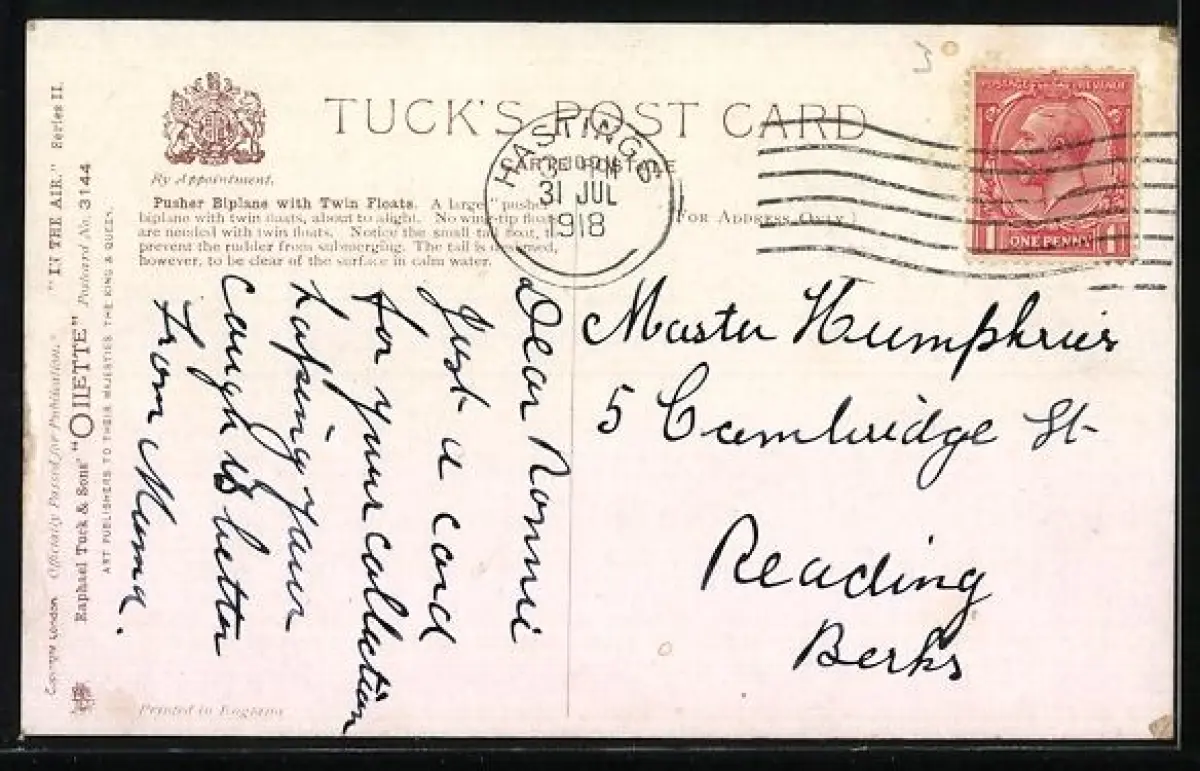 TUCK'S POST CARD
CARTE POSTALE
(FOR ADDRESS ONLY)
By Appointment.
Pusher Biplane with Twin Floats. A large "pusher"
biplane with twin floats, about to alight. No wing-tip floats
are needed with twin floats. Notice the small tail float, to
prevent the rudder from submerging. The tail is designed,
however, to be clear of the surface in calm water.
HASTINGS
31 JUL
1918
POSTAGE REVENUE
1 ONE PENNY 1
3
Dear Ronnie
Just a card
for your collection
hoping your
cough is better
from Muma.
Master Humphries
5 Cambridge St
Reading
Berks
"IN THE AIR." Series II.
Officially Passed for Publication.
Copyright London
Raphael Tuck & Sons' "OILETTE" Postcard No. 3144
ART PUBLISHERS TO THEIR MAJESTIES THE KING & QUEEN.
Printed in England